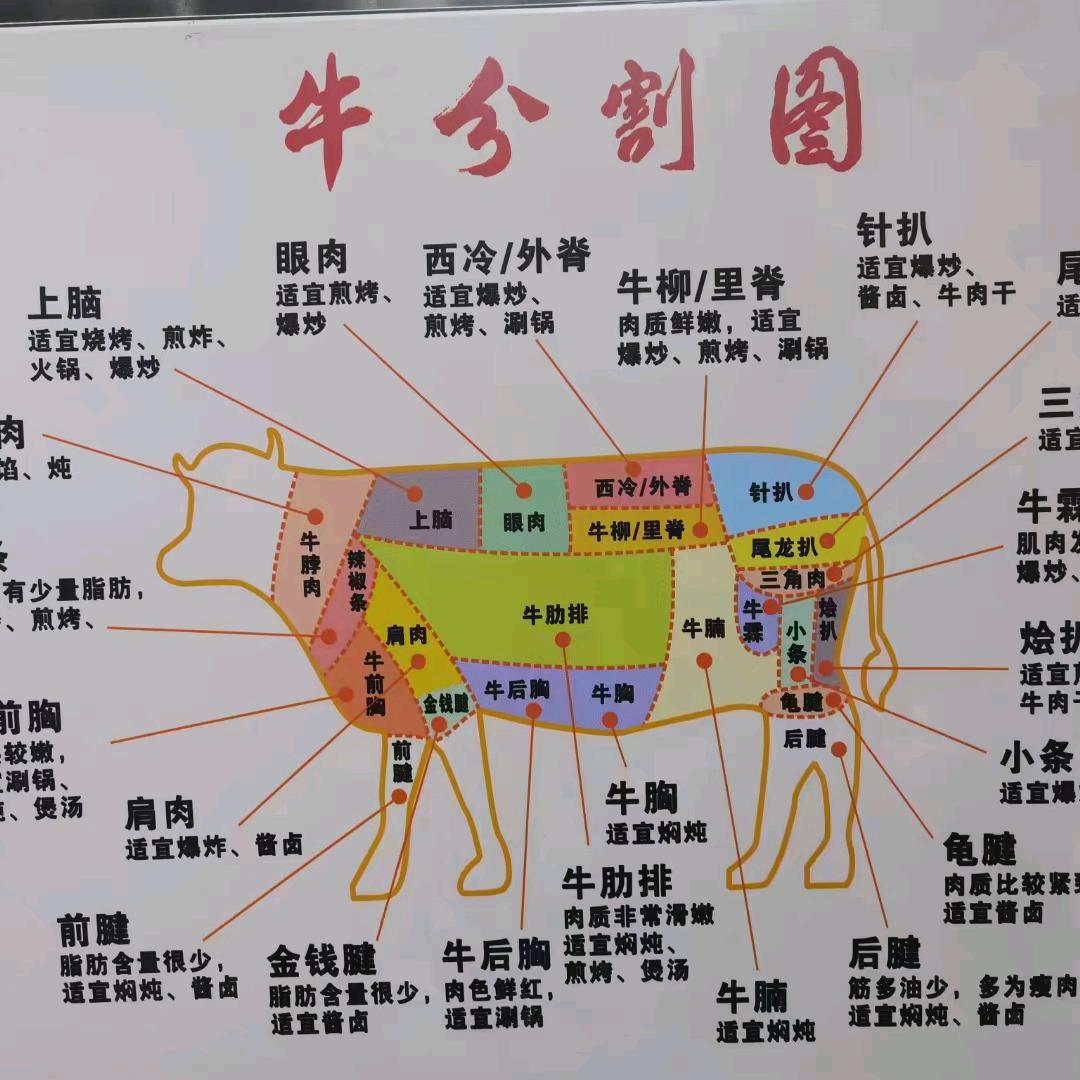 牛分割图
眼肉
适宜煎烤、
爆炒
西冷/外脊
适宜爆炒、
煎烤、涮锅
牛柳/里脊
肉质鲜嫩，适宜
爆炒、煎烤、涮锅
针扒
适宜爆炒、
酱卤、牛肉干
尾
适
上脑
适宜烧烤、煎炸、
火锅、爆炒
肉
馅、炖
三
适宜
牛霖
肌肉发
爆炒、
条
有少量脂肪，
、煎烤、
烩扒
适宜
牛肉干
前胸
较嫩，
涮锅、
、煲汤
小条
适宜爆
肩肉
适宜爆炸、酱卤
牛胸
适宜焖炖
龟腱
肉质比较紧
适宜酱卤
牛肋排
肉质非常滑嫩
适宜焖炖、
煎烤、煲汤
前腱
脂肪含量很少，
适宜焖炖、酱卤
金钱腱
脂肪含量很少，
适宜酱卤
牛后胸
肉色鲜红，
适宜涮锅
牛腩
适宜焖炖
后腱
筋多油少，多为瘦肉
适宜焖炖、酱卤
牛脖肉
上脑
眼肉
西冷/外脊
牛柳/里脊
针扒
尾龙扒
三角肉
辣椒条
肩肉
牛肋排
牛腩
牛霖
小条
烩扒
牛前胸
金钱腱
牛后胸
牛胸
龟腱
前腱
后腱